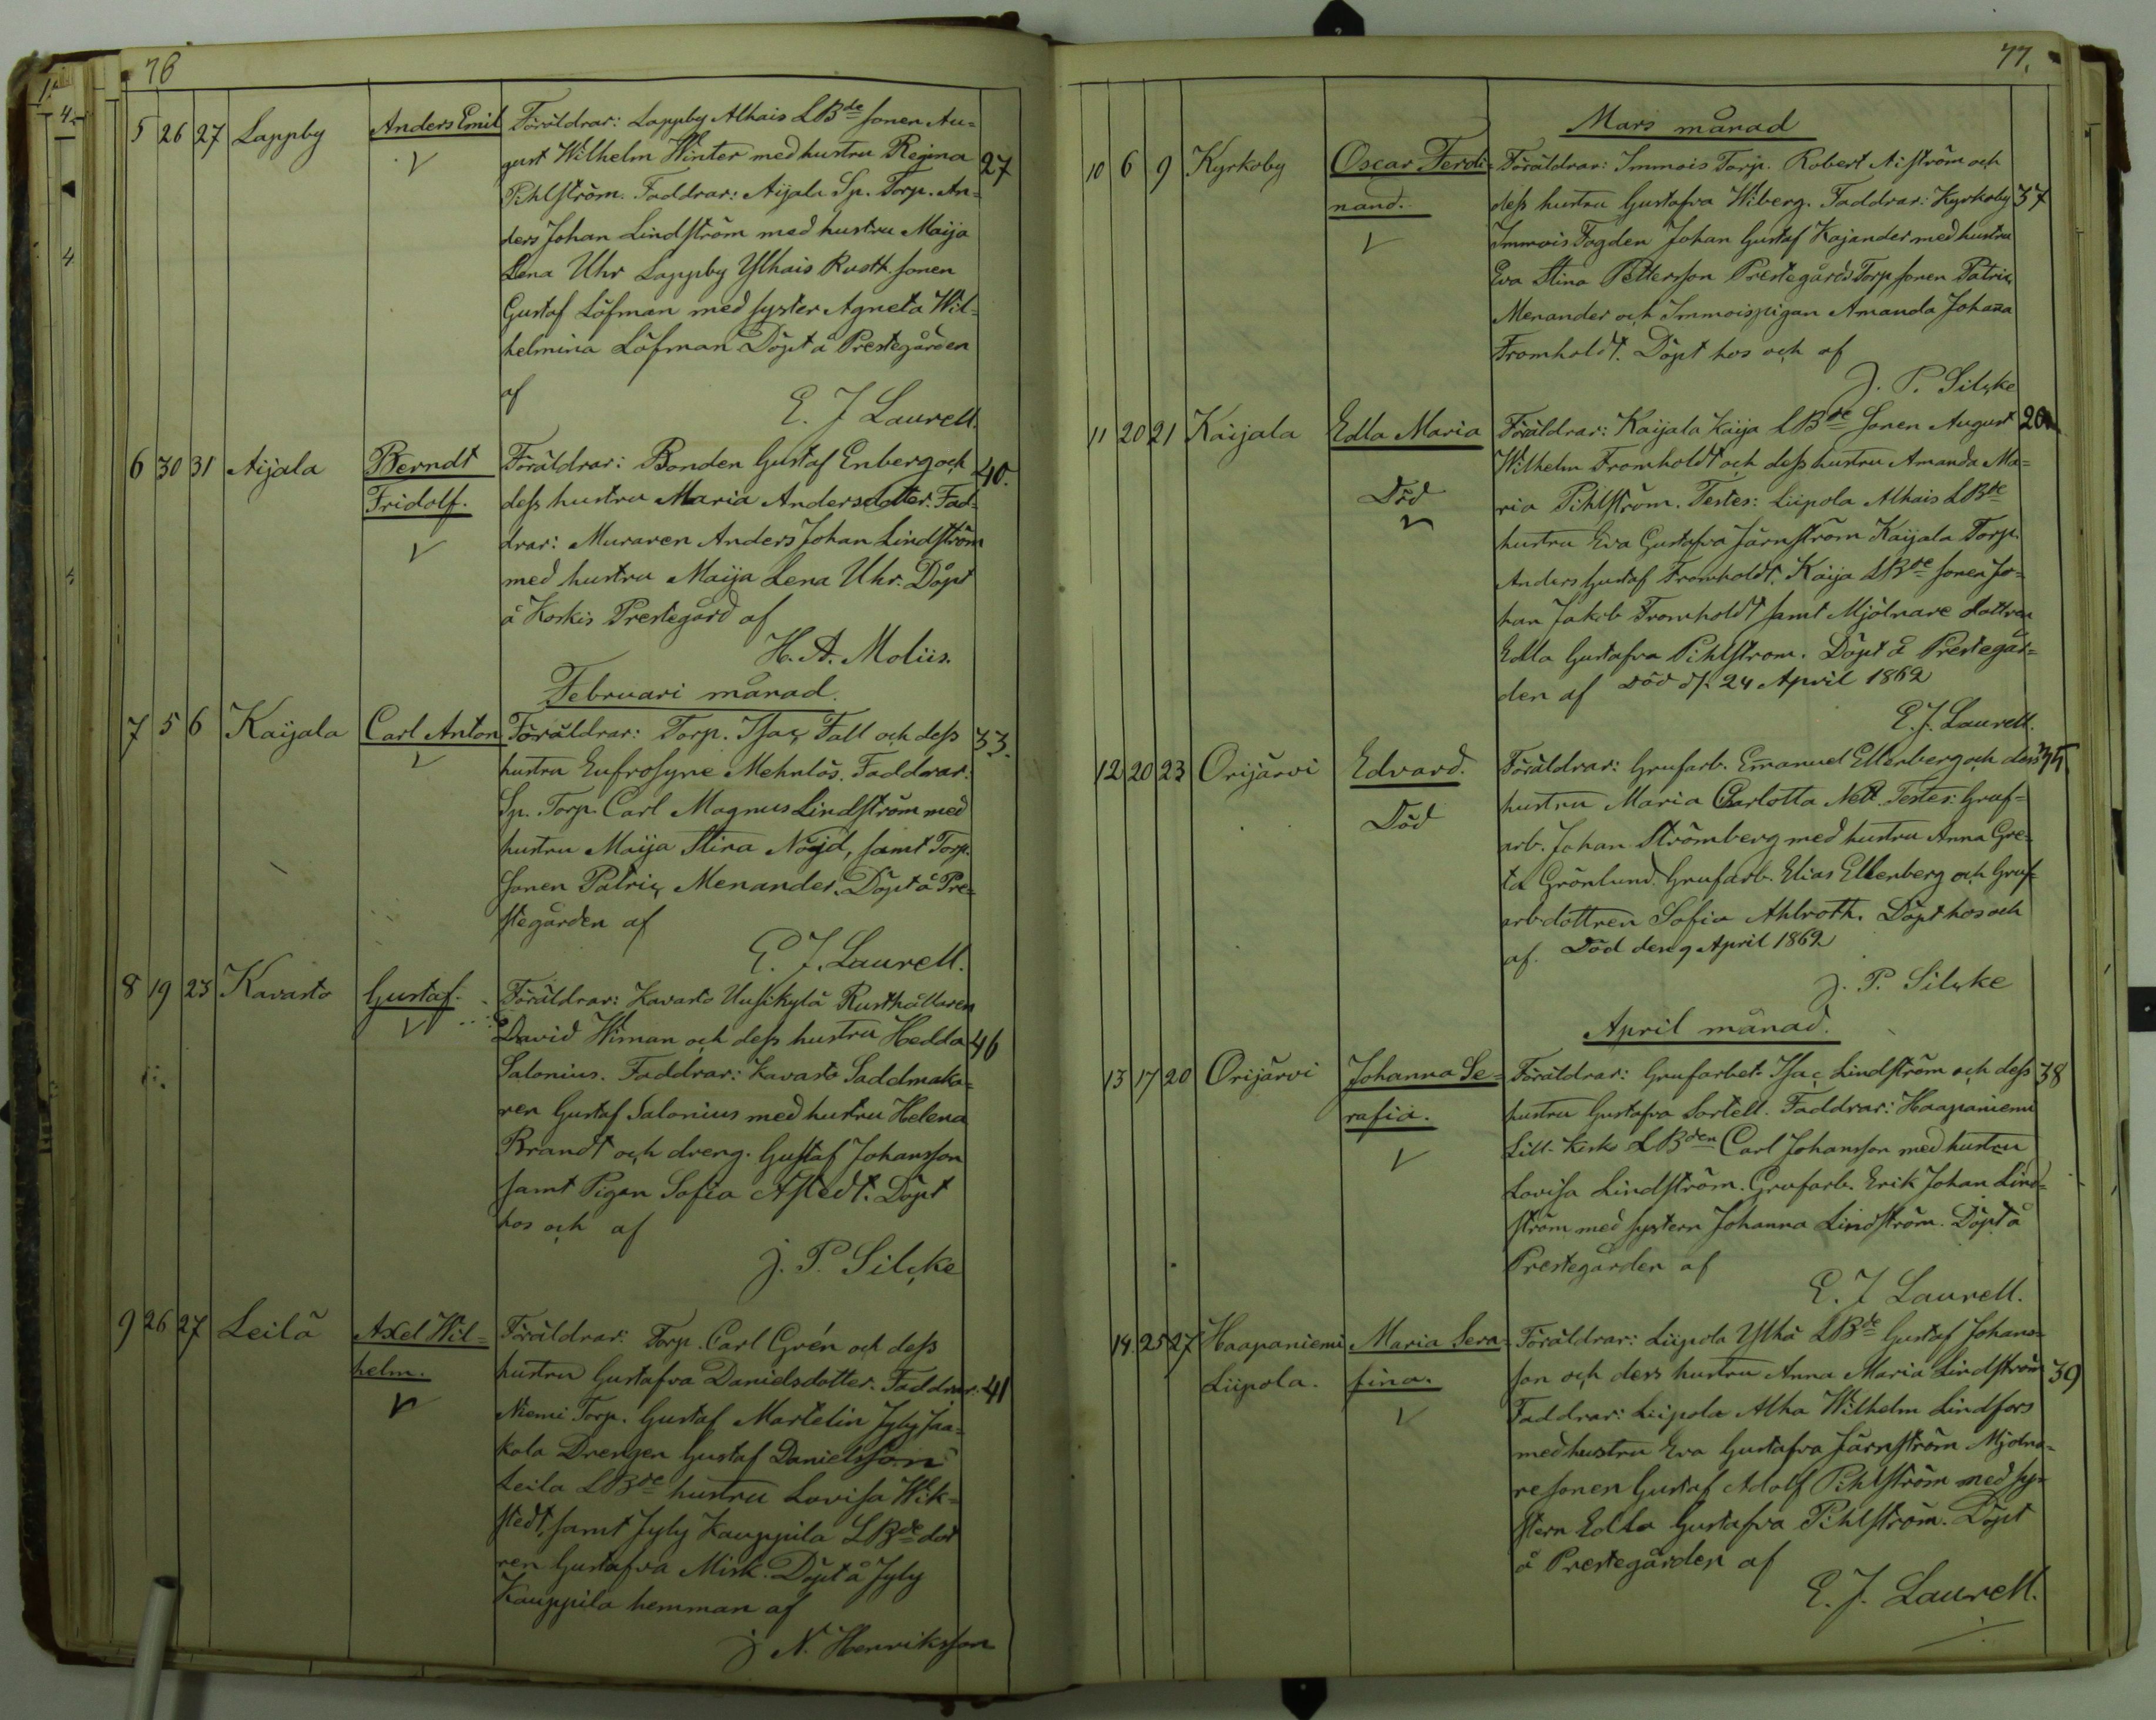 76
5 26 27 Lappby Anders Emil Föräldrar: Lappby Alhais LBde sonen Au=
gust Wilhelm Winter med hustru Regina 27
Pihlström. Faddrar: Aijala Sp. Torp. An=
ders Johan Lindström med hustru Maija
Lena Uhr Lappby Ylhais Rustt. sonen
Gustaf Löfman med syster Agneta Wil=
helmina Löfman Döpt å Prestegården
af
E. J Laurell.
6 30 31 Aijala Berndt Föräldrar: Bonden Gustaf Enberg och 40.
Fridolf. dess hustru Maria Andersdotter. Fad=
drar: Muraren Anders Johan Lindström
med hustru Maija Lena Uhr. Döpt
å Koskis Prestegård af
H. A. Moliis.
Februari månad.
7 5 6 Kaijala Carl Anton Föräldrar: Torp. Isac Fall och dess 33.
hustru Eufrosyne Mehnlös. Faddrar:
Sp. Torp. Carl Magnus Lindström med
hustru Maija Stina Nöjd, samt Torp.
sonen Patric Menander. Döpt å Pre=
stegården af
E. J. Laurell.
8 19 23 Kavasto Gustaf. Föräldrar: Kavasto Uusikylä Rusthållaren
David Wiman och dess hustru Hedda 46
Salonius. Faddrar: Kavasto Saddmaka=
ren Gustaf Salonius med hustru Helena
Brandt och dreng. Gustaf Johansson
samt Pigan Sofia Astedt. Döpt
hos och af
J. P. Silcke
9 26 27 Leilä Axel Wil= Föräldrar: Torp. Carl Grén och dess
helm. hustru Gustafva Danielsdotter. Faddrar: 41
Niemi Torp. Gustaf Martelin Jyly Jaa=
kola Drengen Gustaf Danielsson
Leila LBde hustru Lovisa Wik=
stedt, samt Jyly Kauppila LBde dot
ren Gustafva Misk. Döpt å Jyly
Kauppila hemman af
J N. Henriksson
77.
Mars månad
10 6 9 Kyrkoby Oscar Ferdi= Föräldrar: Immois Torp. Robert Aiström och
nand. dess hustru Gustafva Wiberg. Faddrar: Kyrkoby 37
Immois Fogden Johan Gustaf Kajander med hustru
Eva Stina Pettersson Prestegårds Torp sonen Patric
Menander och Immoispigan Amanda Johana
Fromholdt. Döpt hos och af
J. P. Silcke
11 20 21 Kaijala Edla Maria Föräldrar: Kaijala Kaija LBde Sonen August 20
Wilhelm Fromholdt och dess hustru Amanda Ma=
Död ria Pihlström. Testes: Liipola Alhais LBde
hustru Eva Gustafva Järnström Kaijala Torp.
Anders Gustaf Fromholdt. Kaija LBde sonen Jo=
han Jakob Fromholdt samt Mjölnare dottren
Edla Gustafva Pihlström. Döpt å Prestegår=
den af Död d. 24 April 1862
E. J. Laurell.
12 20 23 Orijärvi Edvard. Föräldrar: Grufarb. Emanuel Ellenberg och dess 35
Död hustru Maria Charlotta Nett. Testes: Gruf=
arb. Johan Strömberg med hustru Anna Gre=
ta Grönlund. Grufarb. Elias Ellenberg och Gruf
arb dottren Sofia Ahlroth. Döpt hos och
af. Död den 9 April 1862
J. P. Silcke
April månad.
13 17 20 Orijärvi Johanna Se= Föräldrar: Grufarbet. Isac Lindström och dess 38
rafia. hustru Gustafva Sortell. Faddrar: Haapaniemi
Lill-Kisko LBden Carl Johansson med hustru
Lovisa Lindström. Grufarb. Erik Johan Lind=
ström med systern Johanna Lindström. Döpt å
Prestegården af
E. J Laurell.
14. 25 27 Haapaniemi Maria Sera= Föräldrar: Liipola Ylhä LBde Gustaf Johans=
Liipola. fina. son och dess hustru Anna Maria Lindström 39
Faddrar: Liipola Alha Wilhelm Lindfors
med hustru Eva Gustafva Järnström Mjölna=
re sonen Gustaf Adolf Pihlström med sy=
stern Edla Gustafva Pihlström. Döpt
å Prestegården af
E. J. Laurell.